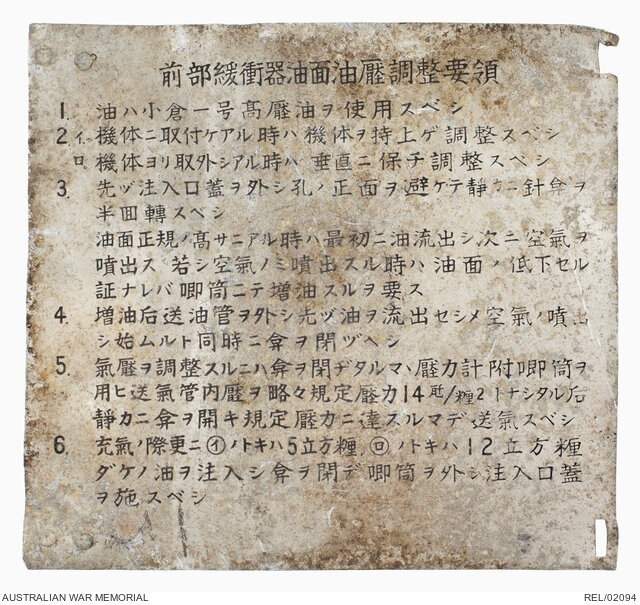 前部緩衝器油面油壓調整要領
1. 油ハ小倉一号髙壓油ヲ使用スベシ
2. イ. 機体ニ取付ケアル時ハ機体ヲ持上ゲ調整スベシ
ロ 機体ヨリ取外シアル時ハ垂直ニ保チ調整スベシ
3. 先ヅ注入口蓋ヲ外シ孔ノ正面ヲ避ケテ靜カニ針弇ヲ
半回轉スベシ
油面正規ノ髙サニアル時ハ最初ニ油流出シ次ニ空氣ヲ
噴出ス 若シ空氣ノミ噴出スル時ハ油面ノ低下セル
証ナレバ喞筒ニテ増油スルヲ要ス
4. 増油后送油管ヲ外シ先ヅ油ヲ流出セシメ空氣ノ噴出
シ始ムルト同時ニ弇ヲ閉ヅベシ
5. 氣壓ヲ調整スルニハ弇ヲ閉ヂタルマハ壓力計附喞筒ヲ
用ヒ送氣管内壓ヲ略々規定壓力14瓩/糎2トナシタル后
靜カニ弇ヲ開キ規定壓力ニ達スルマデ送氣スベシ
6. 充氣ノ際更ニ㋑ノトキハ5立方糎, ㋺ノトキハ12立方糎
ダケノ油ヲ注入シ弇ヲ閉ヂ喞筒ヲ外シ注入口蓋
ヲ施スベシ
AUSTRALIAN WAR MEMORIAL
REL/02094